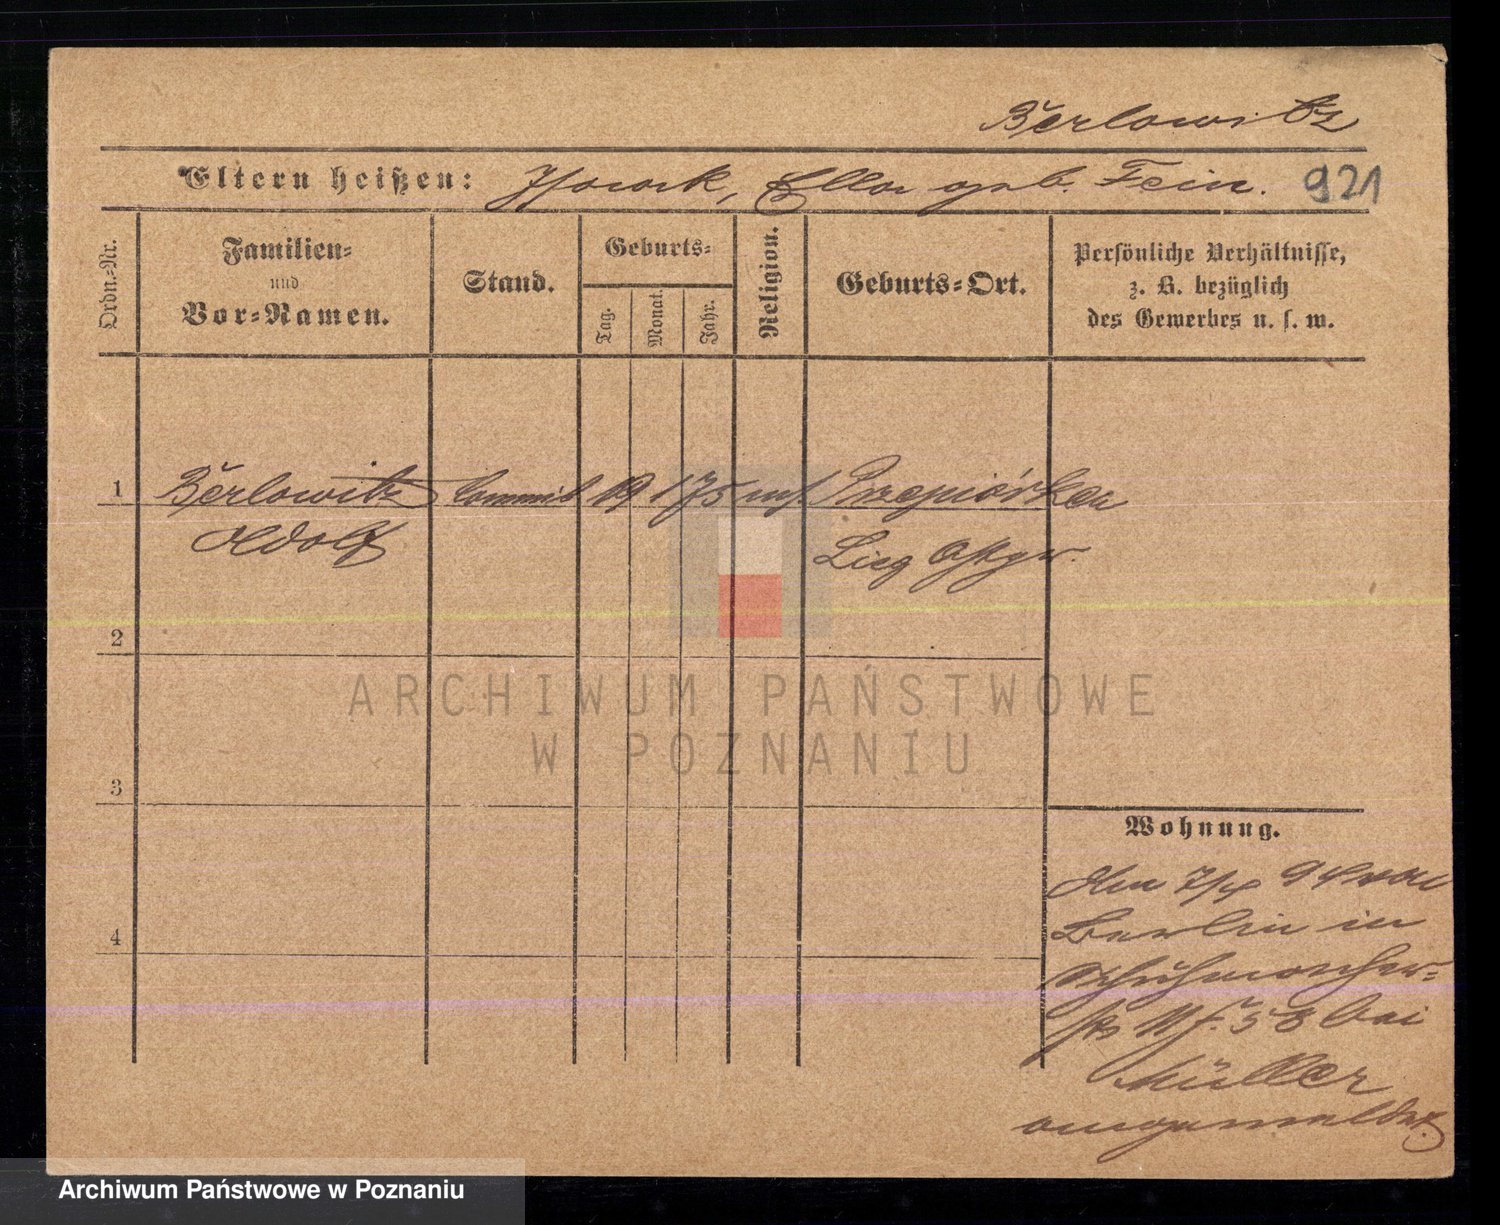 Berlowitz
Eltern heißen: Isaack, Ella geb. Fein.
921
Ordn.-Nr.
Familien-
und
Vor-Namen.
Stand.
Geburts-
Tag.
Monat.
Jahr.
Religion.
Geburts-Ort.
Persönliche Verhältnisse,
z. B. bezüglich
des Gewerbes u. s. w.
1
Berlowitz Commis 19 1 75 mos
Adolf
2
3
4
Wohnung.
Am 7/4 94 von
Berlin in
Schuhmacher-
bei
Müller
angemeldet.
ARCHIWUM PAŃSTWOWE
W POZNANIU
Archiwum Państwowe w Poznaniu